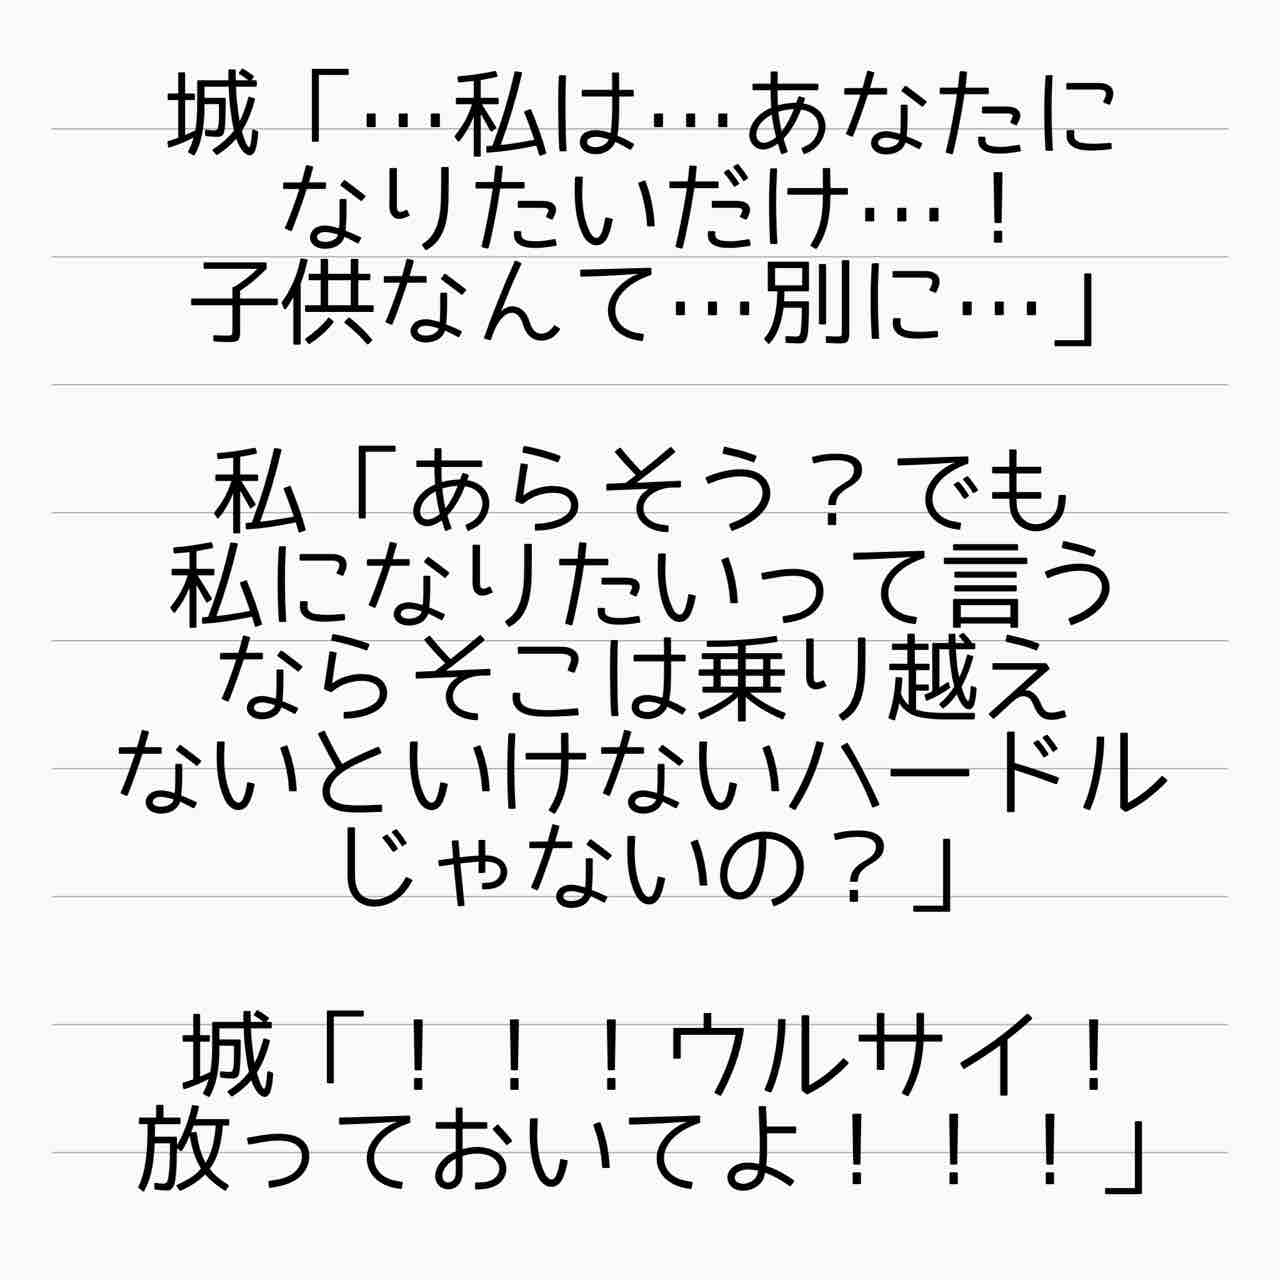 城「…私は…あなたに
なりたいだけ…！
子供なんて…別に…」
私「あらそう？でも
私になりたいって言う
ならそこは乗り越え
ないといけないハードル
じゃないの？」
城「！！！ウルサイ！
放っておいてよ！！！」